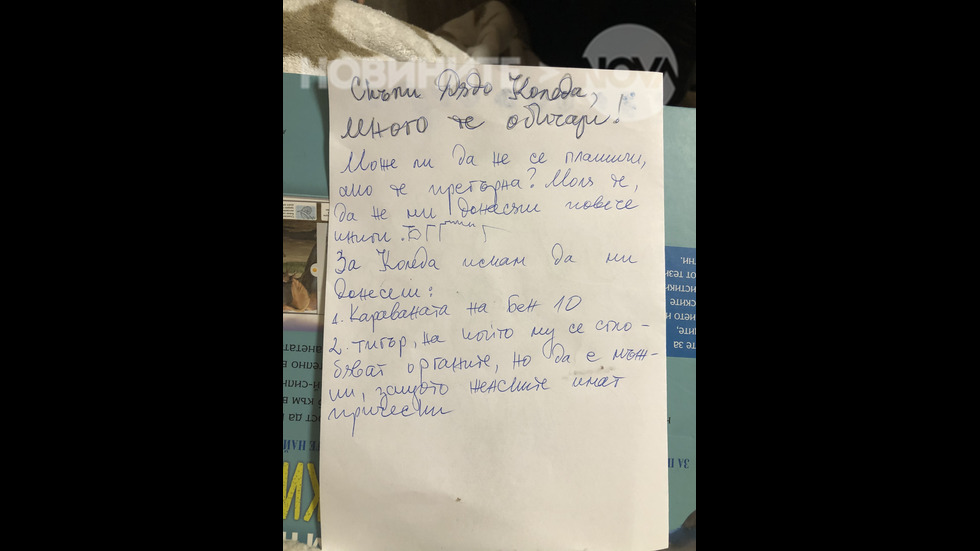 НОВИНИТЕ > NOVA
Скъпи Дядо Коледа,
много те обичам!
Може ли да не се плашиш,
ако те прегърна? Моля те,
да не ми донасяш повече
книги.
За Коледа искам да ми
донесеш:
1. Караваната на Бен 10
2. тигър, на който му се сгло-
бяват органите, но да е мъж-
ки, защото женските имат
прически